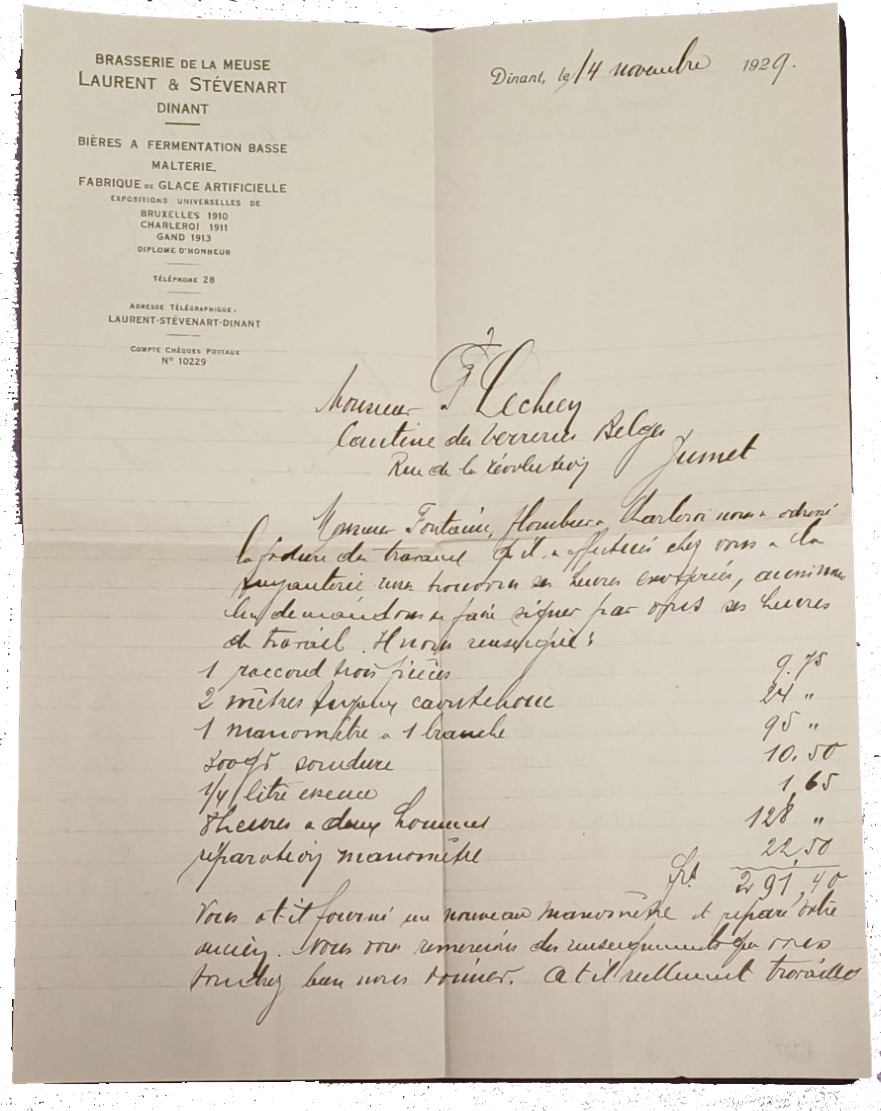 BRASSERIE DE LA MEUSE
LAURENT & STÉVENART
DINANT
BIÈRES A FERMENTATION BASSE
MALTERIE.
FABRIQUE DE GLACE ARTIFICIELLE
EXPOSITIONS UNIVERSELLES DE
BRUXELLES 1910
CHARLEROI 1911
GAND 1913
DIPLOME D'HONNEUR
TÉLÉPHONE 28
ADRESSE TÉLÉGRAPHIQUE:
LAURENT-STÉVENART-DINANT
COMPTE CHÈQUES POSTAUX
N° 10229
Dinant, le 14 novembre 1929.
Monsieur
Cantine des Verreries Belges
Rue de la révolution Jumet
Monsieur Fontaine, Charleroi nous a adressé
la facture du travail qu'il a effectués chez vous a la
nous trouvons ses heures exagérées, aussi nous
demandons de faire signer par ses heures
de travail. Il nous renseigne:
1 raccord trois pièces 9.75
2 mètres tuyaux caoutchouc 24 "
1 manomètre a 1 branche 95 "
soudure 10.50
1/4 litre essence 1,65
8 heures a deux hommes 128 "
réparation manomètre 22,50
Frs 291,40
Vous a t-il fourni un nouveau manomètre et réparé votre
ancien. Nous vous remercions des renseignements que vous
voudrez bien nous donner. A t il réellement travaillés